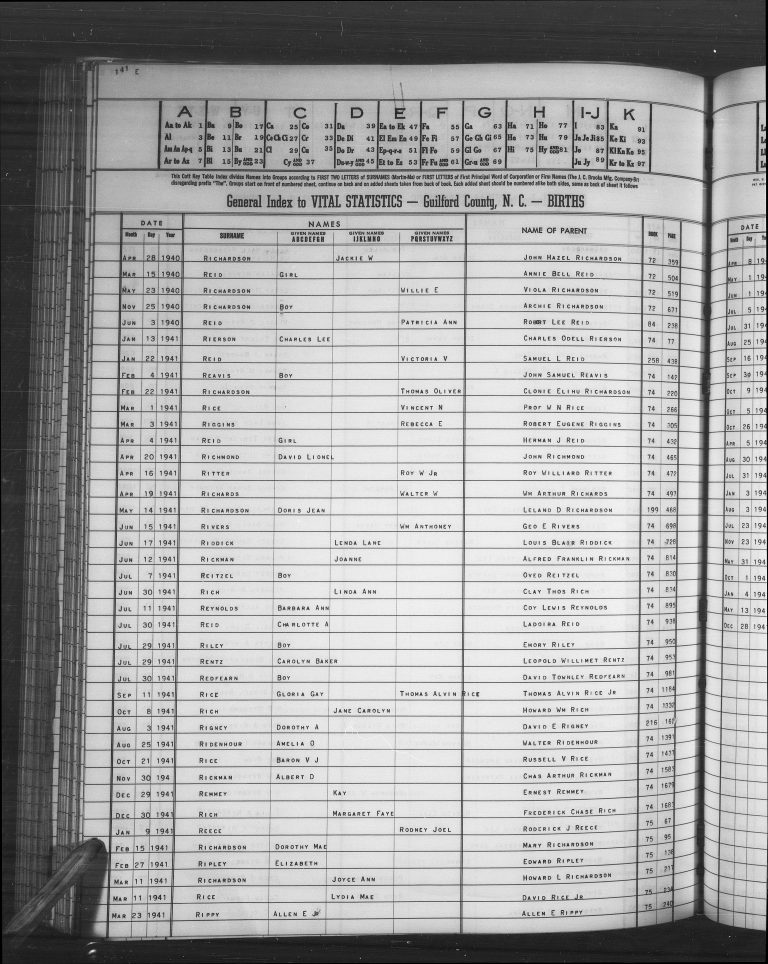 A B C D E F G H I-J K
Aa to Ak 1 Ba 9 Bo 17 Ca 25 Co 31 Da 39 Ea to Ek 47 Fa 55 Ga 63 Ha 71 Ho 77 I 83 Ka 91
Al 3 Be 11 Br 19 Ce Ch Ci 27 Cr 33 De Di 41 El Em En 49 Fe Fi 57 Ge Gh Gi 65 He 73 Hu 79 Ja Je Ji 85 Ke Ki 93
Am An Ap-q 5 Bi 13 Bu 21 Cl 29 Cu 35 Do Dr 43 Ep-q-r-s 51 Fl Fo 59 Gl Go 67 Hi 75 Hy AND ODD 81 Jo 87 Kl Kn Ko 95
Ar to Az 7 Bl 15 By AND ODD 23 Cy AND ODD 37 Du-w-y AND ODD 45 Et to Ez 53 Fr-Fu AND ODD 61 Gr-u AND ODD 69 Ju Jy 89 Kr to Kz 97
This Cott Key Table Index divides Names into Groups according to FIRST TWO LETTERS of SURNAMES (Martin-Ma) or FIRST LETTERS of First Principal Word of Corporation or Firm Names (The J. C. Brooks Mfg. Company-Br)
disregarding prefix "The". Groups start on front of numbered sheet, continue on back and on added sheets taken from back of book. Each added sheet should be numbered alike both sides, same as back of sheet it follows
General Index to VITAL STATISTICS — Guilford County, N. C. — BIRTHS
DATE NAMES NAME OF PARENT BOOK PAGE
Month Day Year SURNAME GIVEN NAMES ABCDEFGH GIVEN NAMES IJKLMNO GIVEN NAMES PQRSTUVWXYZ
APR 28 1940 RICHARDSON JACKIE W JOHN HAZEL RICHARDSON 72 359
MAR 15 1940 REID GIRL ANNIE BELL REID 72 504
MAY 23 1940 RICHARDSON WILLIE E VIOLA RICHARDSON 72 519
NOV 25 1940 RICHARDSON BOY ARCHIE RICHARDSON 72 671
JUN 3 1940 REID PATRICIA ANN ROBERT LEE REID 84 238
JAN 13 1941 RIERSON CHARLES LEE CHARLES ODELL RIERSON 74 77
JAN 22 1941 REID VICTORIA V SAMUEL L REID 258 438
FEB 4 1941 REAVIS BOY JOHN SAMUEL REAVIS 74 142
FEB 22 1941 RICHARDSON THOMAS OLIVER CLONIE ELIHU RICHARDSON 74 220
MAR 1 1941 RICE VINCENT N PROF W N RICE 74 266
MAR 3 1941 RIGGINS REBECCA E ROBERT EUGENE RIGGINS 74 305
APR 4 1941 REID GIRL HERMAN J REID 74 432
APR 20 1941 RICHMOND DAVID LIONEL JOHN RICHMOND 74 465
APR 16 1941 RITTER ROY W JR ROY WILLIARD RITTER 74 472
APR 19 1941 RICHARDS WALTER W WM ARTHUR RICHARDS 74 497
MAY 14 1941 RICHARDSON DORIS JEAN LELAND D RICHARDSON 199 468
JUN 15 1941 RIVERS WM ANTHONEY GEO E RIVERS 74 698
JUN 17 1941 RIDDICK LENDA LANE LOUIS BLAIR RIDDICK 74 728
JUN 12 1941 RICKMAN JOANNE ALFRED FRANKLIN RICKMAN 74 814
JUL 7 1941 REITZEL BOY OVED REITZEL 74 830
JUN 30 1941 RICH LINDA ANN CLAY THOS RICH 74 874
JUL 11 1941 REYNOLDS BARBARA ANN COY LEWIS REYNOLDS 74 895
JUL 30 1941 REID CHARLOTTE A LADOIRA REID 74 938
JUL 29 1941 RILEY BOY EMORY RILEY 74 950
JUL 29 1941 RENTZ CAROLYN BAKER LEOPOLD WILLIMET RENTZ 74 953
JUL 30 1941 REDFEARN BOY DAVID TOWNLEY REDFEARN 74 981
SEP 11 1941 RICE GLORIA GAY THOMAS ALVIN RICE THOMAS ALVIN RICE JR 74 1184
OCT 8 1941 RICH JANE CAROLYN HOWARD WM RICH 74 1330
AUG 3 1941 RIGNEY DOROTHY A DAVID E RIGNEY 216
AUG 25 1941 RIDENHOUR AMELIA O WALTER RIDENHOUR 74 1391
OCT 21 1941 RICE BARON V J RUSSELL V RICE 74 1437
NOV 30 194 RICKMAN ALBERT D CHAS ARTHUR RICKMAN 74 1585
DEC 29 1941 REMMEY KAY ERNEST REMMEY 74 1679
DEC 30 1941 RICH MARGARET FAYE FREDERICK CHASE RICH 74 1681
JAN 9 1941 REECE RODNEY JOEL RODERICK J REECE 75 67
FEB 15 1941 RICHARDSON DOROTHY MAE MARY RICHARDSON 75 95
FEB 27 1941 RIPLEY ELIZABETH EDWARD RIPLEY 75
MAR 11 1941 RICHARDSON JOYCE ANN HOWARD L RICHARDSON 75 217
MAR 11 1941 RICE LYDIA MAE DAVID RICE JR 75
MAR 23 1941 RIPPY ALLEN E JR ALLEN E RIPPY 75 240